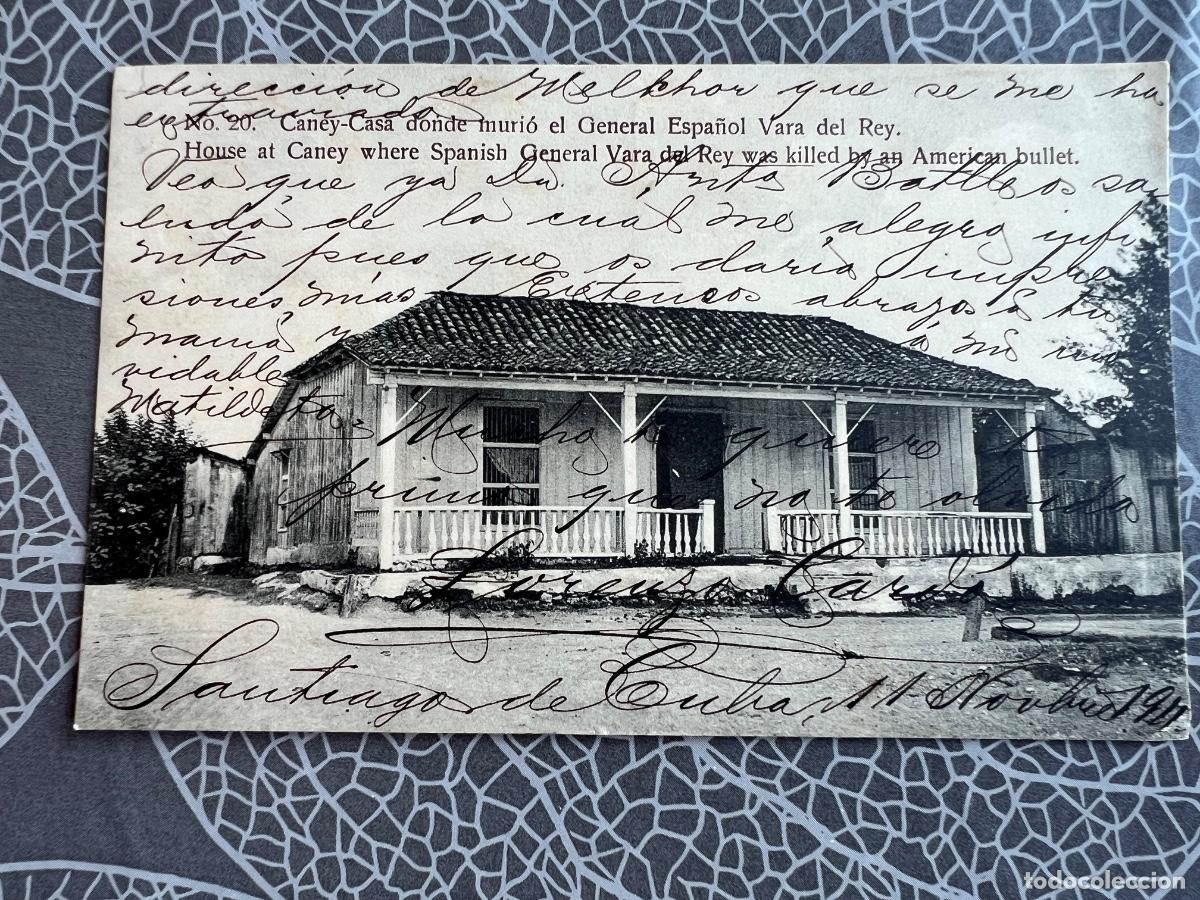 dirección de Melkhor que se me ha
extraviado
No. 20. Caney-Casa donde murió el General Español Vara del Rey.
House at Caney where Spanish General Vara del Rey was killed by an American bullet.
Veo que ya Dn. Anto Batlle os
de la cual me alegro infi
nito pues que os daria impre
siones más Extensos abrazos á tu
mamá y á mi inol
vidable
Matildita.
Mucho te quiere tu
primo que no te olvida
Lorenzo
Santiago de Cuba, 11 Novbre 1911
todocoleccion